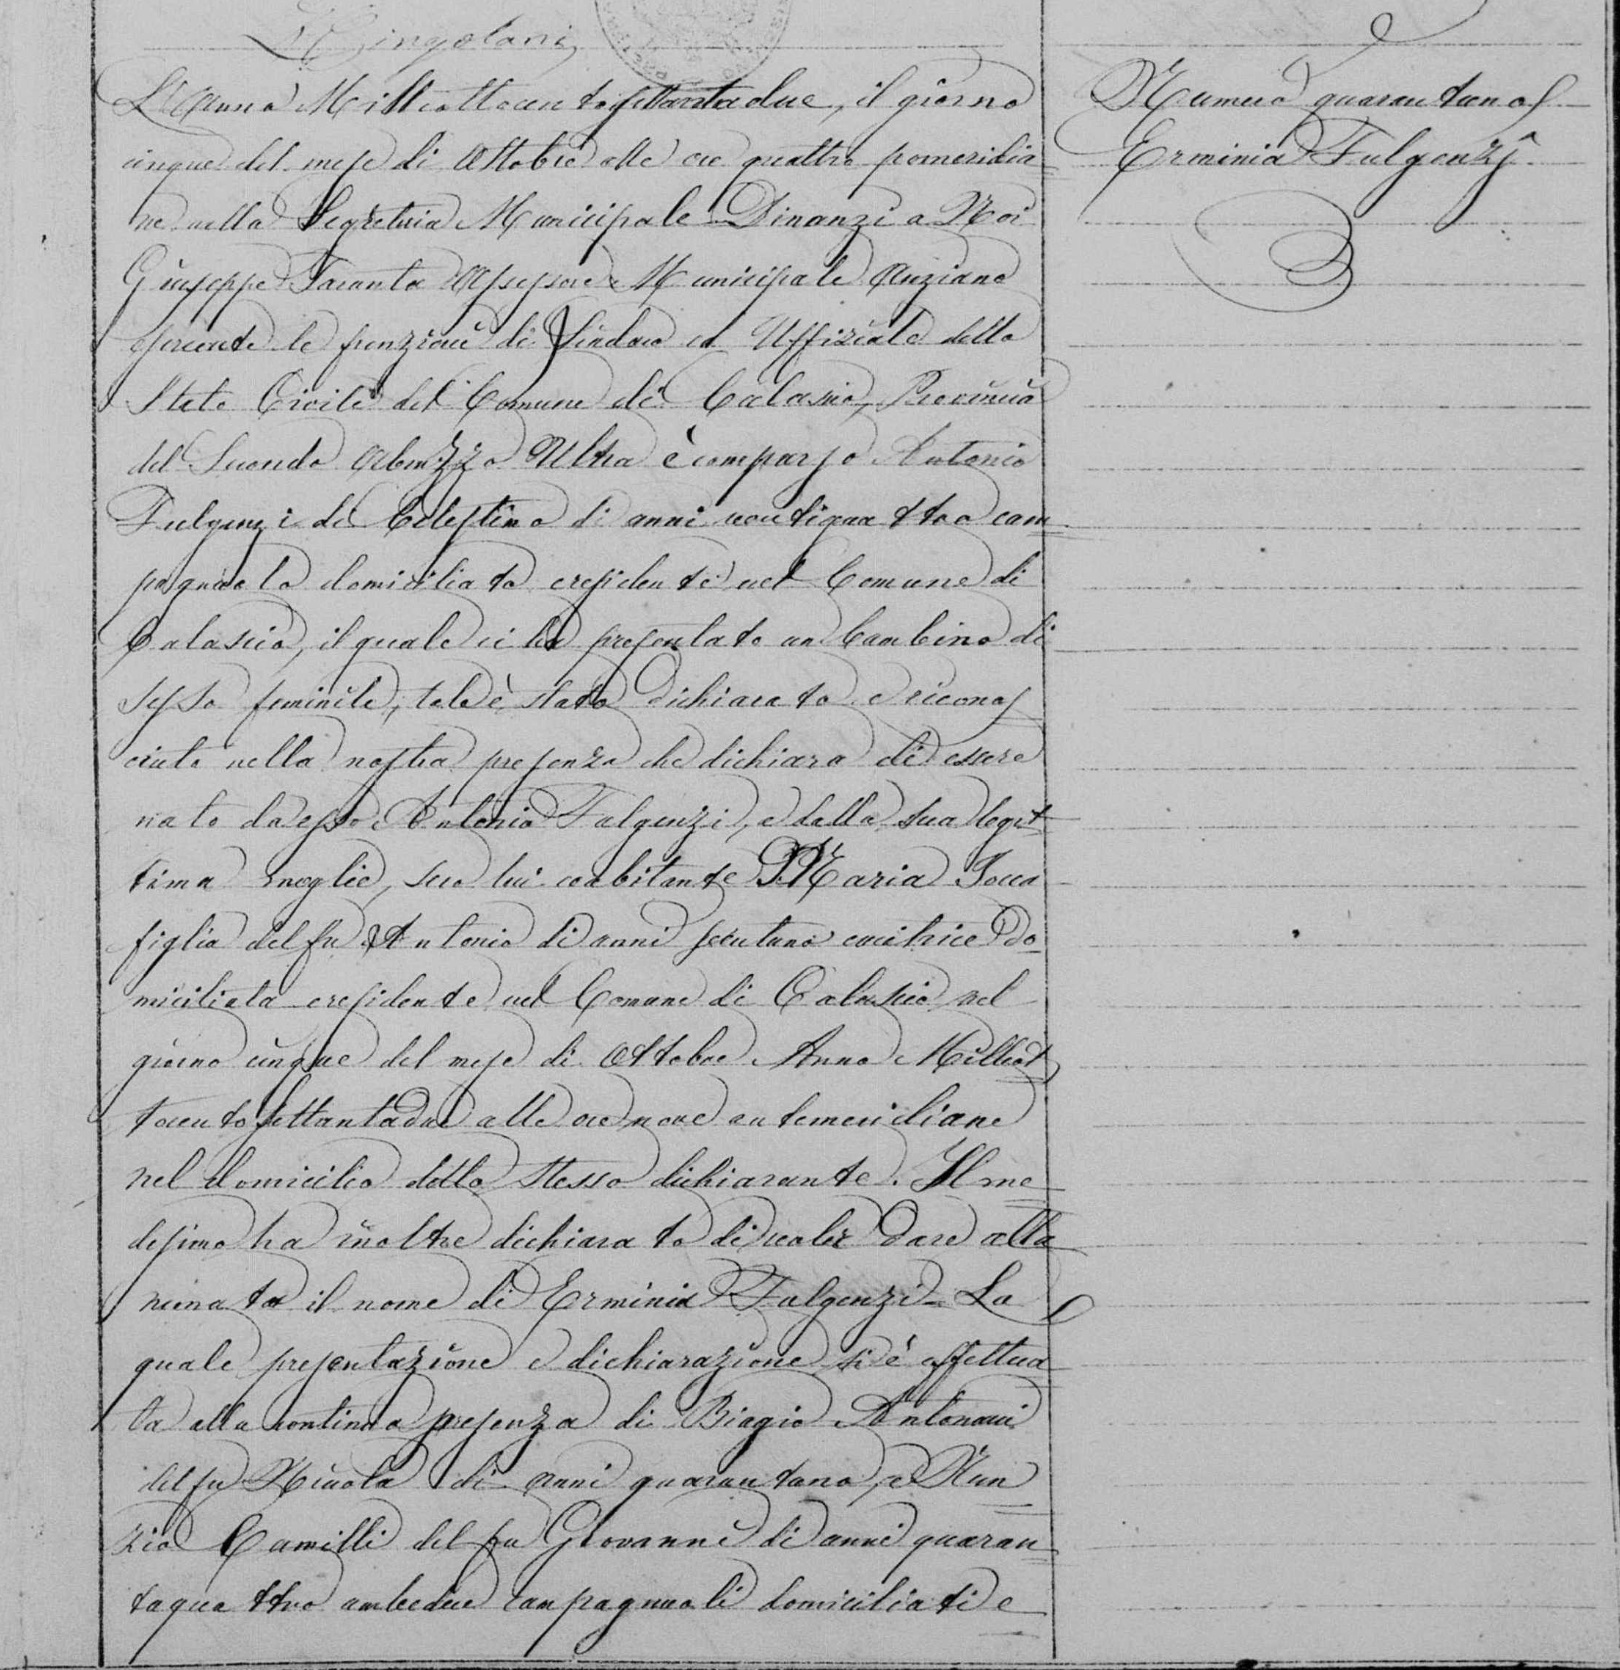 Cingolani
L'Anno Milleottocentosettantadue, il giorno
cinque del mese di Ottobre alle ore quattro pomeridia
ne nella Segreteria Municipale Dinanzi a Noi
Giuseppe Taranta Assessore Municipale Anziano
esercente le funzioni di Sindaco ed Uffiziale dello
Stato Civile del Comune di Calascio, Provincia
del Secondo Abruzzo Ultra è comparso Antonio
Fulgenzi di Celestino di anni ventiquattro cam
pagnuolo domiciliato e residente nel Comune di
Calascio, il quale ci ha presentato un bambino di
sesso feminile, tale è stato dichiarato e riconos
ciuto nella nostra presenza che dichiara di essere
nato da esso Antonio Fulgenzi, e dalla sua legit
tima moglie, seco lui coabitante Maria
figlia del fu Antonio di anni trentuno cucitrice do
miciliata e residente nel Comune di Calascio nel
giorno cinque del mese di Ottobre Anno Milleot
tocentosettantadue alle ore nove antemeridiane
nel domicilio dello stesso dichiarante. Il me
desimo ha inoltre dichiarato di voler dare alla
neonata il nome di Erminia Fulgenzi - La
quale presentazione e dichiarazione si è effettua
ta alla continua presenza di Biagio Antonacci
del fu Nicola di anni quarantuno, e Nun
zio Camilli del fu Giovanni di anni quaran
taquattro ambedue campagnuoli domiciliati e
Numero quarantanos
Erminia Fulgenzi